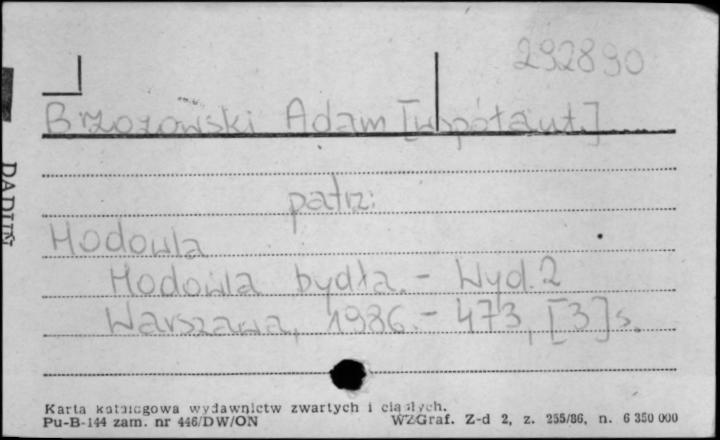 292890
Brzozowski Adam [współaut.]
patrz:
Hodowla
Hodowla bydła. - Wyd. 2
Warszawa, 1986. - 473, [3] s.
Karta katalogowa wydawnictw zwartych i ciągłych.
Pu-B-144 zam. nr 446/DW/ON
WZGraf. Z-d 2, z. 255/86, n. 6 350 000